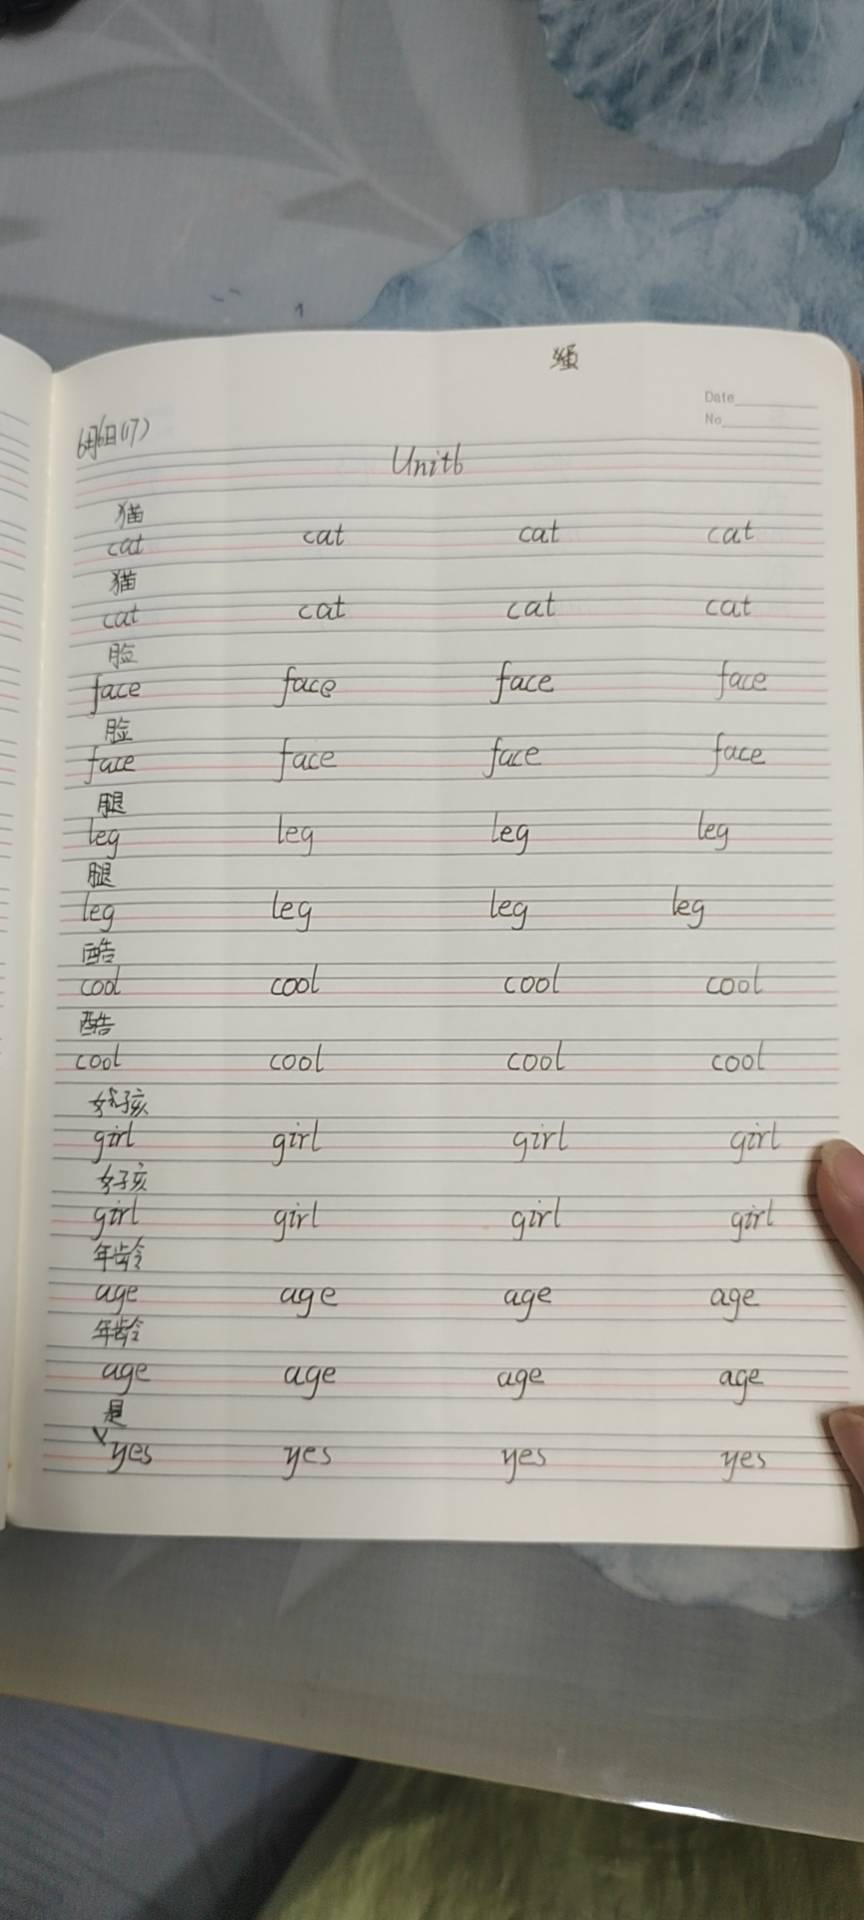 Date
No
6月6日(17)
Unit6
猫
cat cat cat cat
猫
cat cat cat cat
脸
face face face face
脸
face face face face
腿
leg leg leg leg
腿
leg leg leg leg
酷
cool cool cool cool
酷
cool cool cool cool
女孩
girl girl girl girl
女孩
girl girl girl girl
年龄
age age age age
年龄
age age age age
是
yes yes yes yes